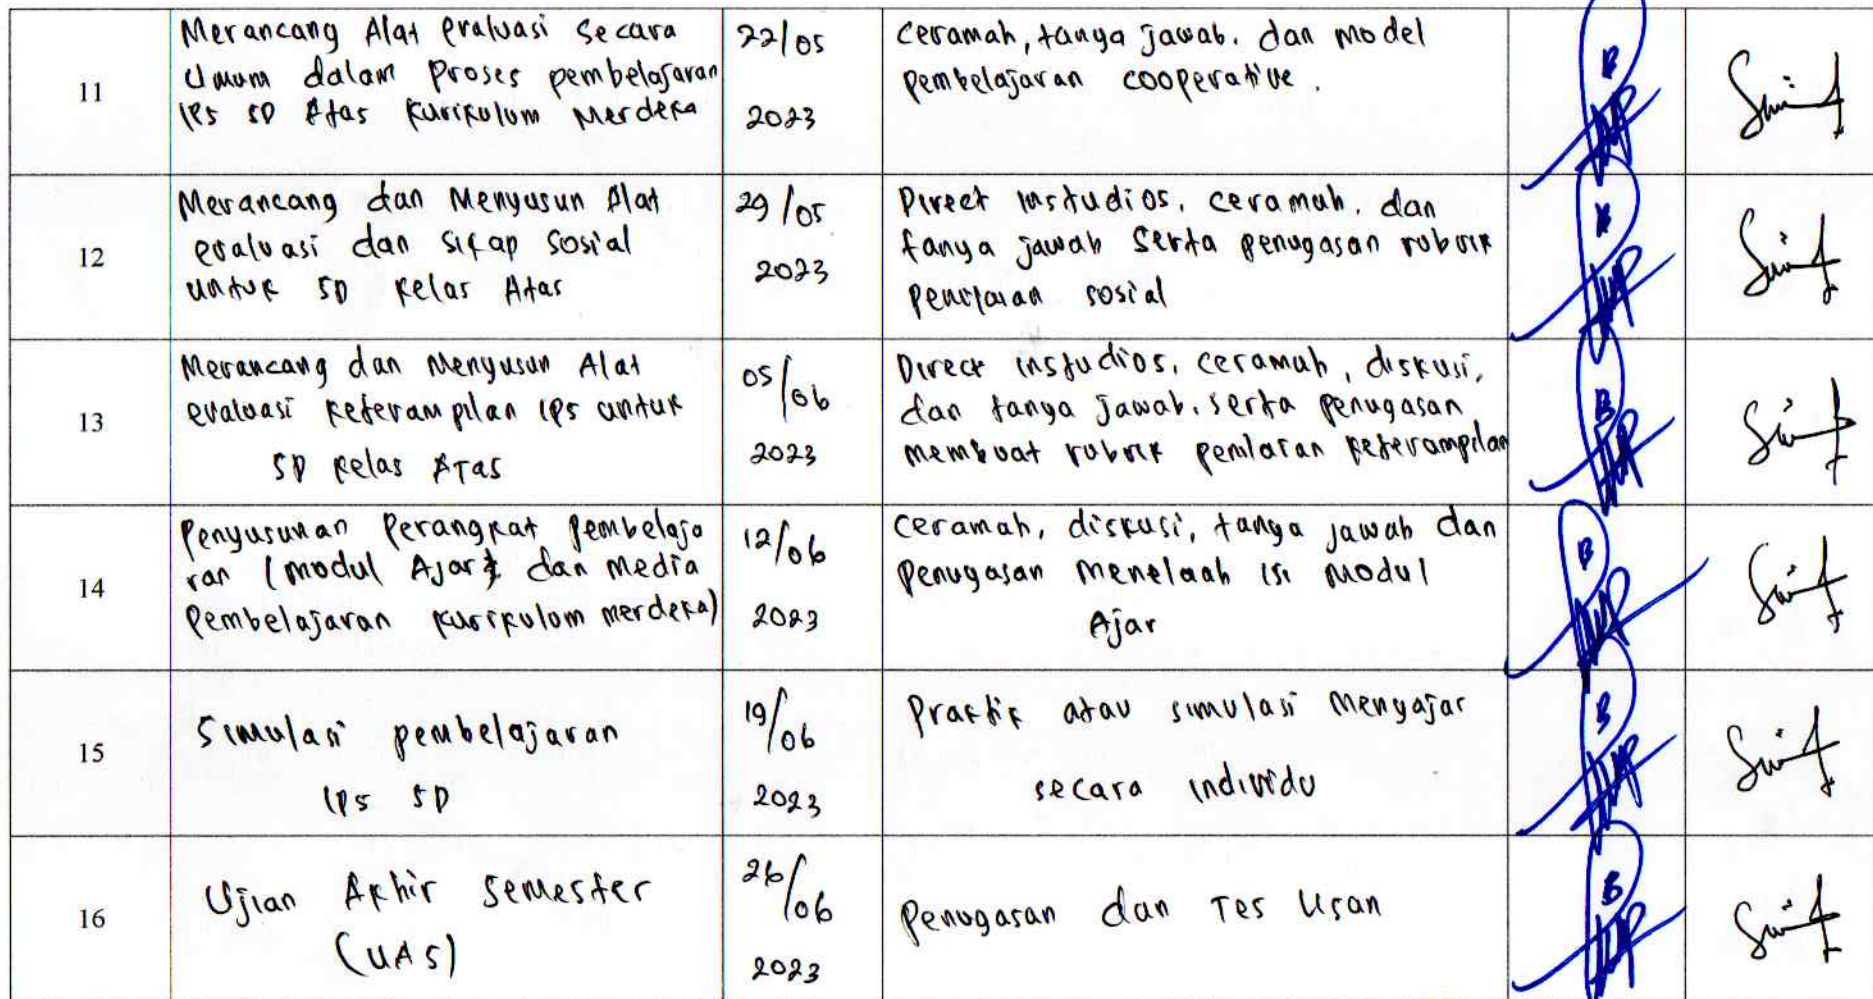 11
Merancang Alat evaluasi Secara
Umum dalam proses pembelajaran
IPS SD Atas Kurikulum Merdeka
22/05
2023
Ceramah, tanya jawab. dan model
pembelajaran cooperative.
12
Merancang dan Menyusun Alat
evaluasi dan sikap sosial
untuk SD kelas Atas
29/05
2023
Direct instudios, ceramah, dan
tanya jawab Serta penugasan rubrik
penilaian sosial
13
Merancang dan Menyusun Alat
evaluasi keterampilan IPS untuk
SD kelas Atas
05/06
2023
Direct instudios, ceramah, diskusi,
dan tanya jawab, serta penugasan
membuat rubrik penilaian keterampilan
14
Penyusunan Perangkat pembelaja
ran (modul Ajar dan Media
Pembelajaran kurikulum merdeka)
12/06
2023
Ceramah, diskusi, tanya jawab dan
Penugasan menelaah isi modul
Ajar
15
Simulasi pembelajaran
IPS SD
19/06
2023
Praktik atau simulasi Mengajar
secara individu
16
Ujian Akhir Semester
(UAS)
26/06
2023
Penugasan dan Tes Lisan